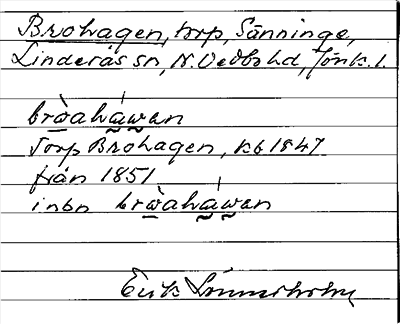 Brohagen, torp, Sänninge,
Linderås sn, N. Vedbo hd, Jönk. l.
bròahàwan
Torp Brohagen, Kb 1847
från 1851
inbn bròahàwan
Erik